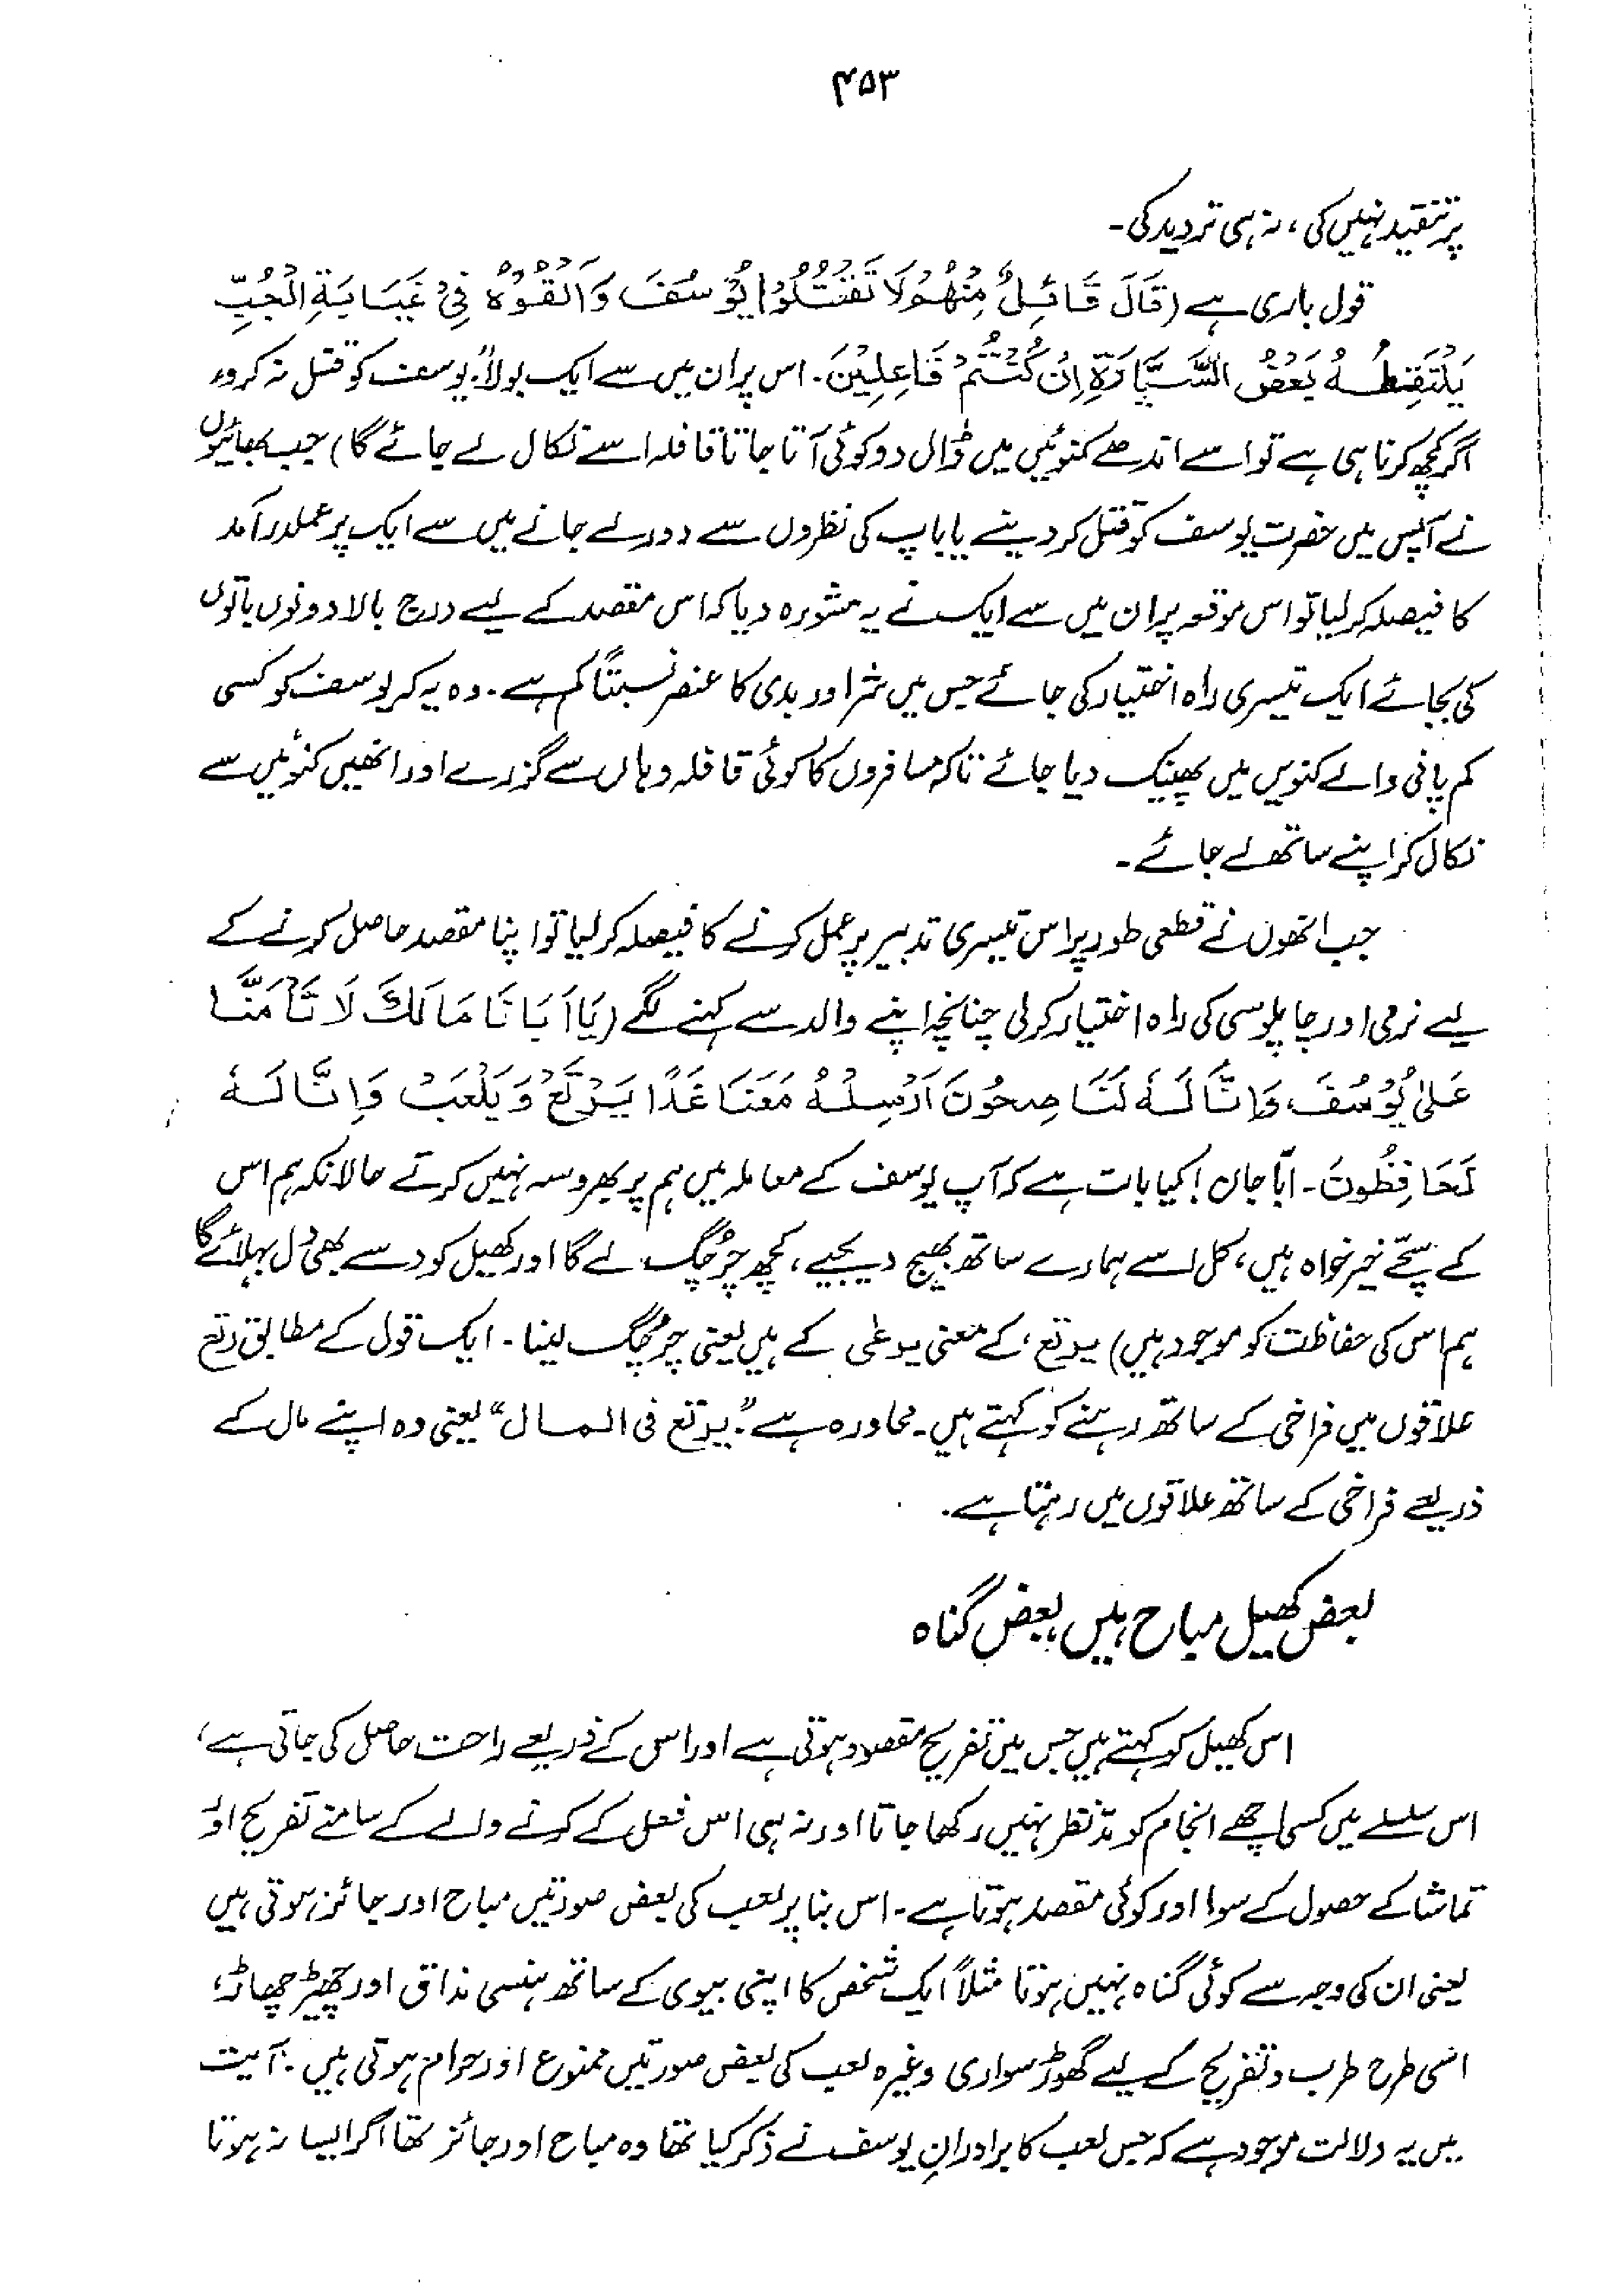 ۴۵۳
پر تنقید نہیں کی، نہ ہی تردید کی۔
قول باری ہے (قَالَ قَائِلٌ مِنْهُمْ لَا تَقْتُلُوْا يُوْسُفَ وَاَلْقُوْهُ فِيْ غَيَابَةِ الْجُبِّ
يَلْتَقِطْهُ بَعْضُ السَّيَّارَةِ اِنْ كُنْتُمْ فَاعِلِيْنَ۔ اس پر ان میں سے ایک بولا "یوسف کو قتل نہ کرو،
اگر کچھ کرنا ہی ہے تو اسے اندھے کنوئیں میں ڈال دو کوئی آتا جاتا قافلہ اسے نکال لے جائے گا) جب بھائیوں
نے آپس میں حضرت یوسف کو قتل کر دینے یا باپ کی نظروں سے دور لے جانے میں سے ایک پر عملدرآمد
کا فیصلہ کر لیا تو اس موقعہ پر ان میں سے ایک نے یہ مشورہ دیا کہ اس مقصد کے لیے درج بالا دونوں باتوں
کی بجائے ایک تیسری راہ اختیار کی جائے جس میں شر اور بدی کا عنصر نسبتاً کم ہے۔ وہ یہ کہ یوسف کو کسی
کم پانی والے کنویں میں پھینک دیا جائے تاکہ مسافروں کا کوئی قافلہ وہاں سے گزرے اور انھیں کنوئیں سے
نکال کر اپنے ساتھ لے جائے۔
جب انھوں نے قطعی طور پر اس تیسری تدبیر پر عمل کرنے کا فیصلہ کر لیا تو اپنا مقصد حاصل کرنے کے
لیے نرمی اور چاپلوسی کی راہ اختیار کر لی چنانچہ اپنے والد سے کہنے لگے (يَا اَبَانَا مَا لَكَ لَا تَأْمَنَّا
عَلىٰ يُوْسُفَ وَاِنَّا لَهُ لَنَا صِحُوْنَ اَرْسِلْهُ مَعَنَا غَدًا يَرْتَعْ وَيَلْعَبْ وَاِنَّا لَهٗ
لَحَافِظُوْنَ۔ ابّا جان! کیا بات ہے کہ آپ یوسف کے معاملہ میں ہم پر بھروسہ نہیں کرتے حالانکہ ہم اس
کے سچّے خیر خواہ ہیں، کل اسے ہمارے ساتھ بھیج دیجیے، کچھ چر چگ لے گا اور کھیل کود سے بھی دل بہلائے گا
ہم اس کی حفاظت کو موجود ہیں) یرتع، کے معنی یرعٰی کے ہیں یعنی چر چگ لینا۔ ایک قول کے مطابق رتع
علاقوں میں فراخی کے ساتھ رہنے کو کہتے ہیں۔ محاورہ ہے "یرتع فی المال" یعنی وہ اپنے مال کے
ذریعے فراخی کے ساتھ علاقوں میں رہتا ہے۔
بعض کھیل مباح ہیں بعض گناہ
اس کھیل کو کہتے ہیں جس میں تفریح مقصود ہوتی ہے اور اس کے ذریعے راحت حاصل کی جاتی ہے،
اس سلسلے میں کسی اچھے انجام کو مدّ نظر نہیں رکھا جاتا اور نہ ہی اس فعل کے کرنے والے کے سامنے تفریح اور
تماشا کے حصول کے سوا اور کوئی مقصد ہوتا ہے۔ اس بنا پر لعب کی بعض صورتیں مباح اور جائز ہوتی ہیں
یعنی ان کی وجہ سے کوئی گناہ نہیں ہوتا مثلاً ایک شخص کا اپنی بیوی کے ساتھ ہنسی مذاق اور چھیڑ چھاڑ،
اسی طرح طرب و تفریح کے لیے گھوڑ سواری وغیرہ لعب کی بعض صورتیں ممنوع اور حرام ہوتی ہیں۔ آیت
میں یہ دلالت موجود ہے کہ جس لعب کا برادرانِ یوسف نے ذکر کیا تھا وہ مباح اور جائز تھا اگر ایسا نہ ہوتا